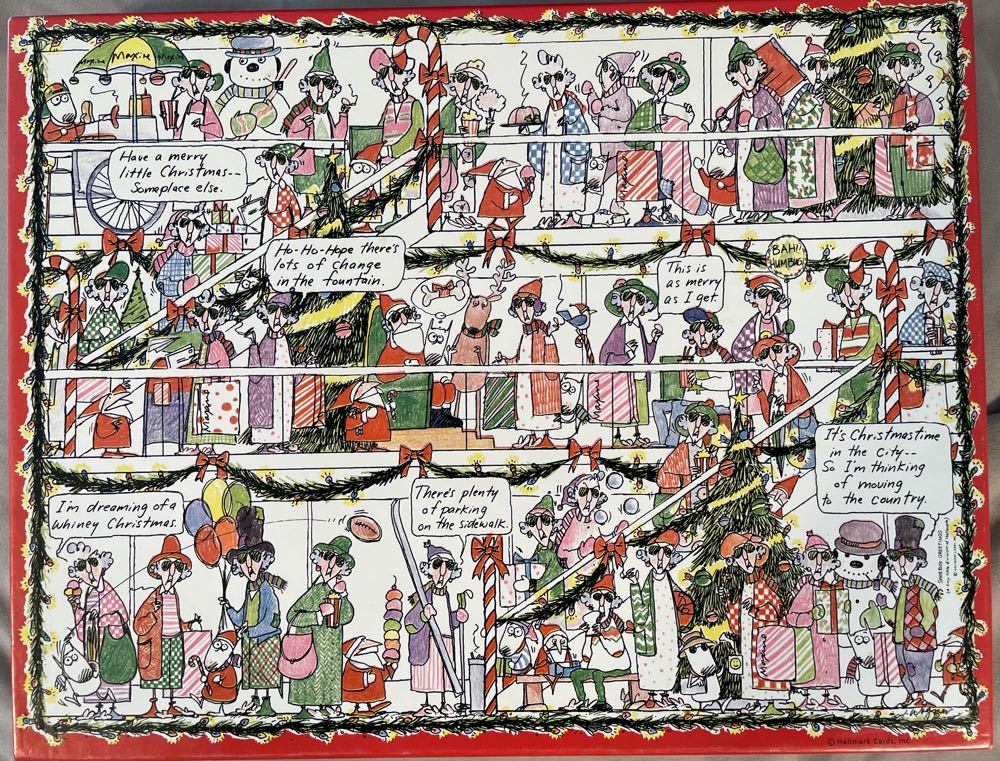 Maxine Maxine Maxine
Have a merry
little Christmas--
Someplace else.
Maxine
Ho-Ho-Hope there's
lots of change
in the fountain.
This is
as merry
as I get.
BAH!!
HUMBUG!
Maxine
Maxine
It's Christmastime
in the City--
So I'm thinking
of moving
to the country.
I'm dreaming of a
whiney Christmas.
There's plenty
of parking
on the sidewalk.
Maxine
SHOEBOX GREETINGS
(A tiny little division of Hallmark)
© Hallmark Cards, Inc.